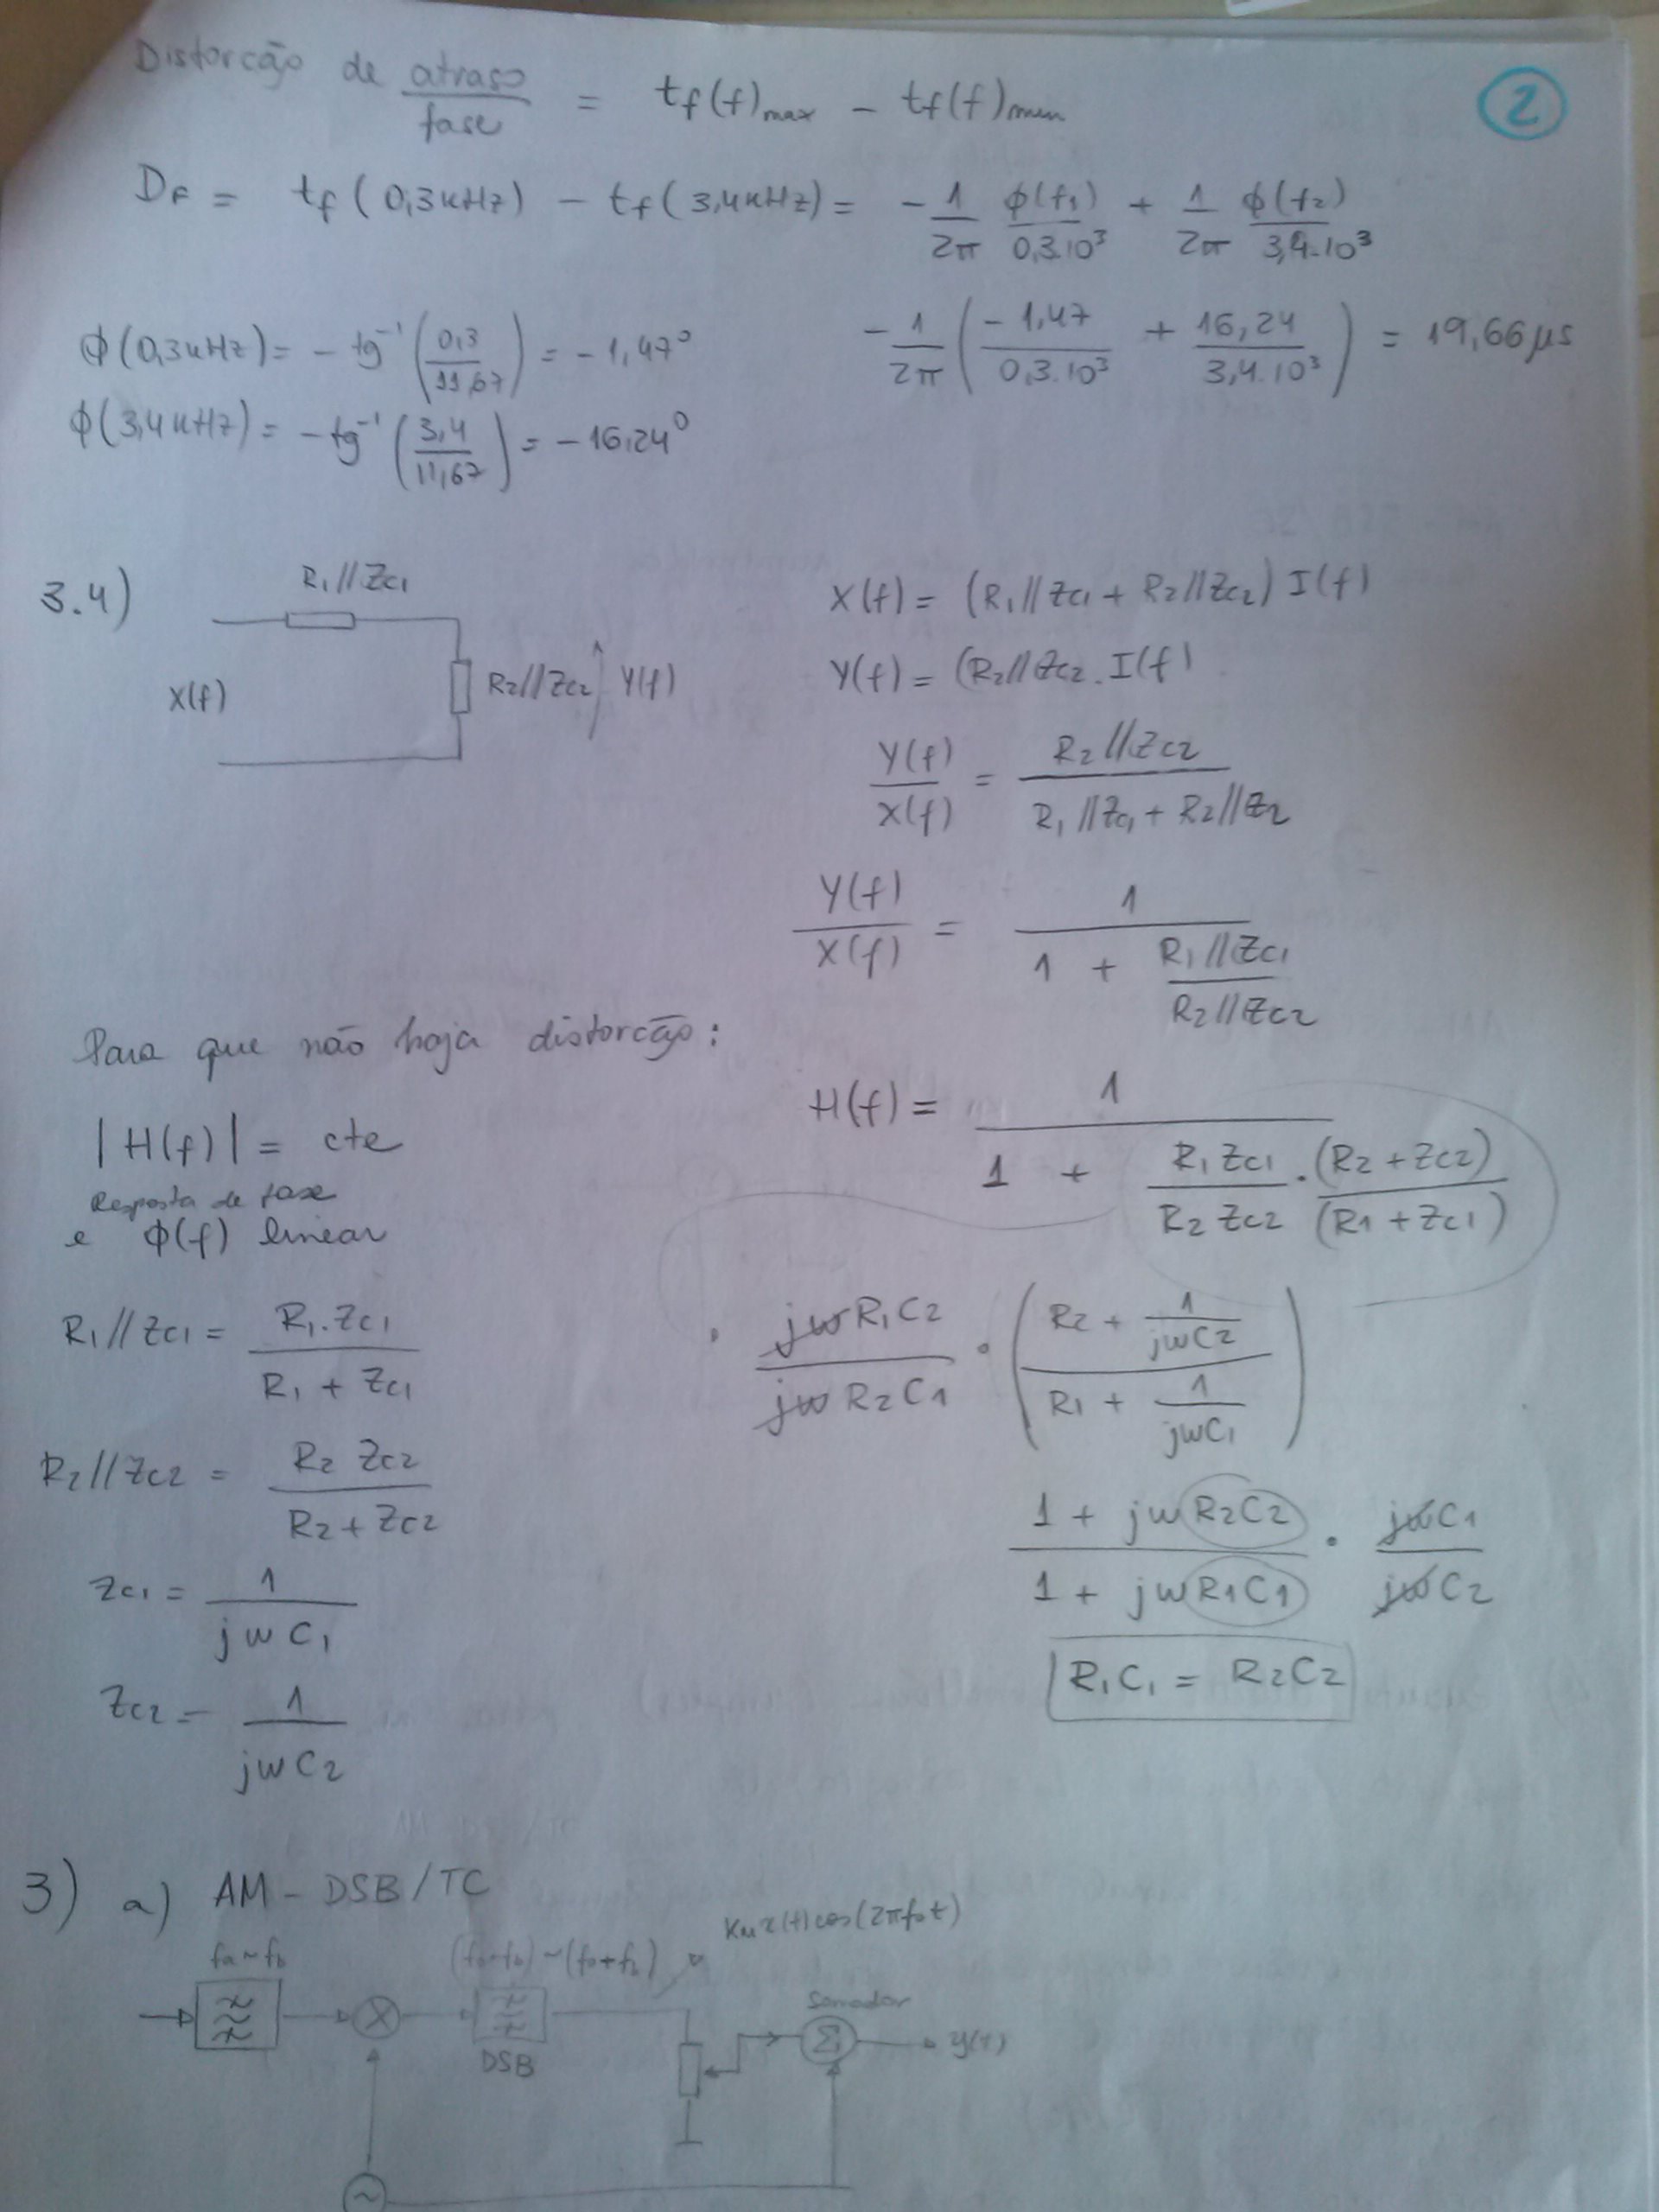 Distorcão de atraso/fase = tf(f)max - tf(f)min
2
DF = tf(0,3kHz) - tf(3,4kHz) = - 1/2π ϕ(f1)/0,3.10³ + 1/2π ϕ(f2)/3,4.10³
ϕ(0,3kHz) = - tg⁻¹(0,3/11,67) = -1,47°
- 1/2π (-1,47/0,3.10³ + 16,24/3,4.10³) = 19,66μs
ϕ(3,4kHz) = - tg⁻¹(3,4/11,67) = -16,24°
3.4)
R1//Zc1
X(f)
R2//Zc2 Y(f)
X(f) = (R1//Zc1 + R2//Zc2) I(f)
Y(f) = (R2//Zc2 . I(f)
Y(f)/X(f) = R2//Zc2 / R1//Zc1 + R2//Z2
Y(f)/X(f) = 1 / 1 + R1//Zc1 / R2//Zc2
Para que não haja distorcão:
|H(f)| = cte
Resposta de fase
e ϕ(f) linear
H(f) = 1 / 1 + R1 Zc1 / R2 Zc2 . (R2 + Zc2) / (R1 + Zc1)
R1//Zc1 = R1.Zc1 / R1 + Zc1
R2//Zc2 = R2 Zc2 / R2 + Zc2
Zc1 = 1 / jwC1
Zc2 = 1 / jwC2
jwR1C2 / jwR2C1 . (R2 + 1/jwC2 / R1 + 1/jwC1)
1 + jwR2C2 / 1 + jwR1C1 . jwC1 / jwC2
R1C1 = R2C2
3) a) AM - DSB/TC
fa ~ fb
~ (fo+fb)
Km x(t) cos(2πfot)
DSB
Somador
Σ
y(t)